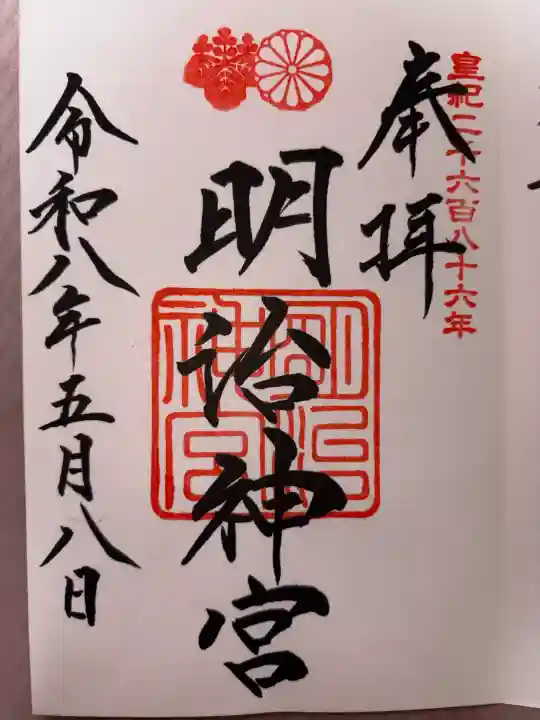 皇紀二千六百八十六年
奉拝
明治神宮
明治神宮
令和八年五月八日